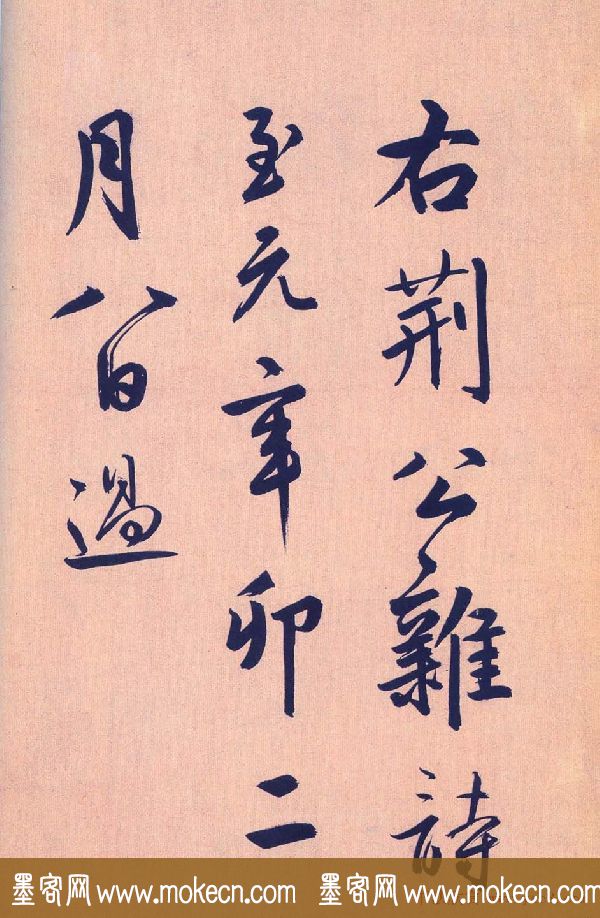 右荆公雜詩
至元辛卯二
月八日過
墨客网 www.mokecn.com 墨客网 www.mokecn.com